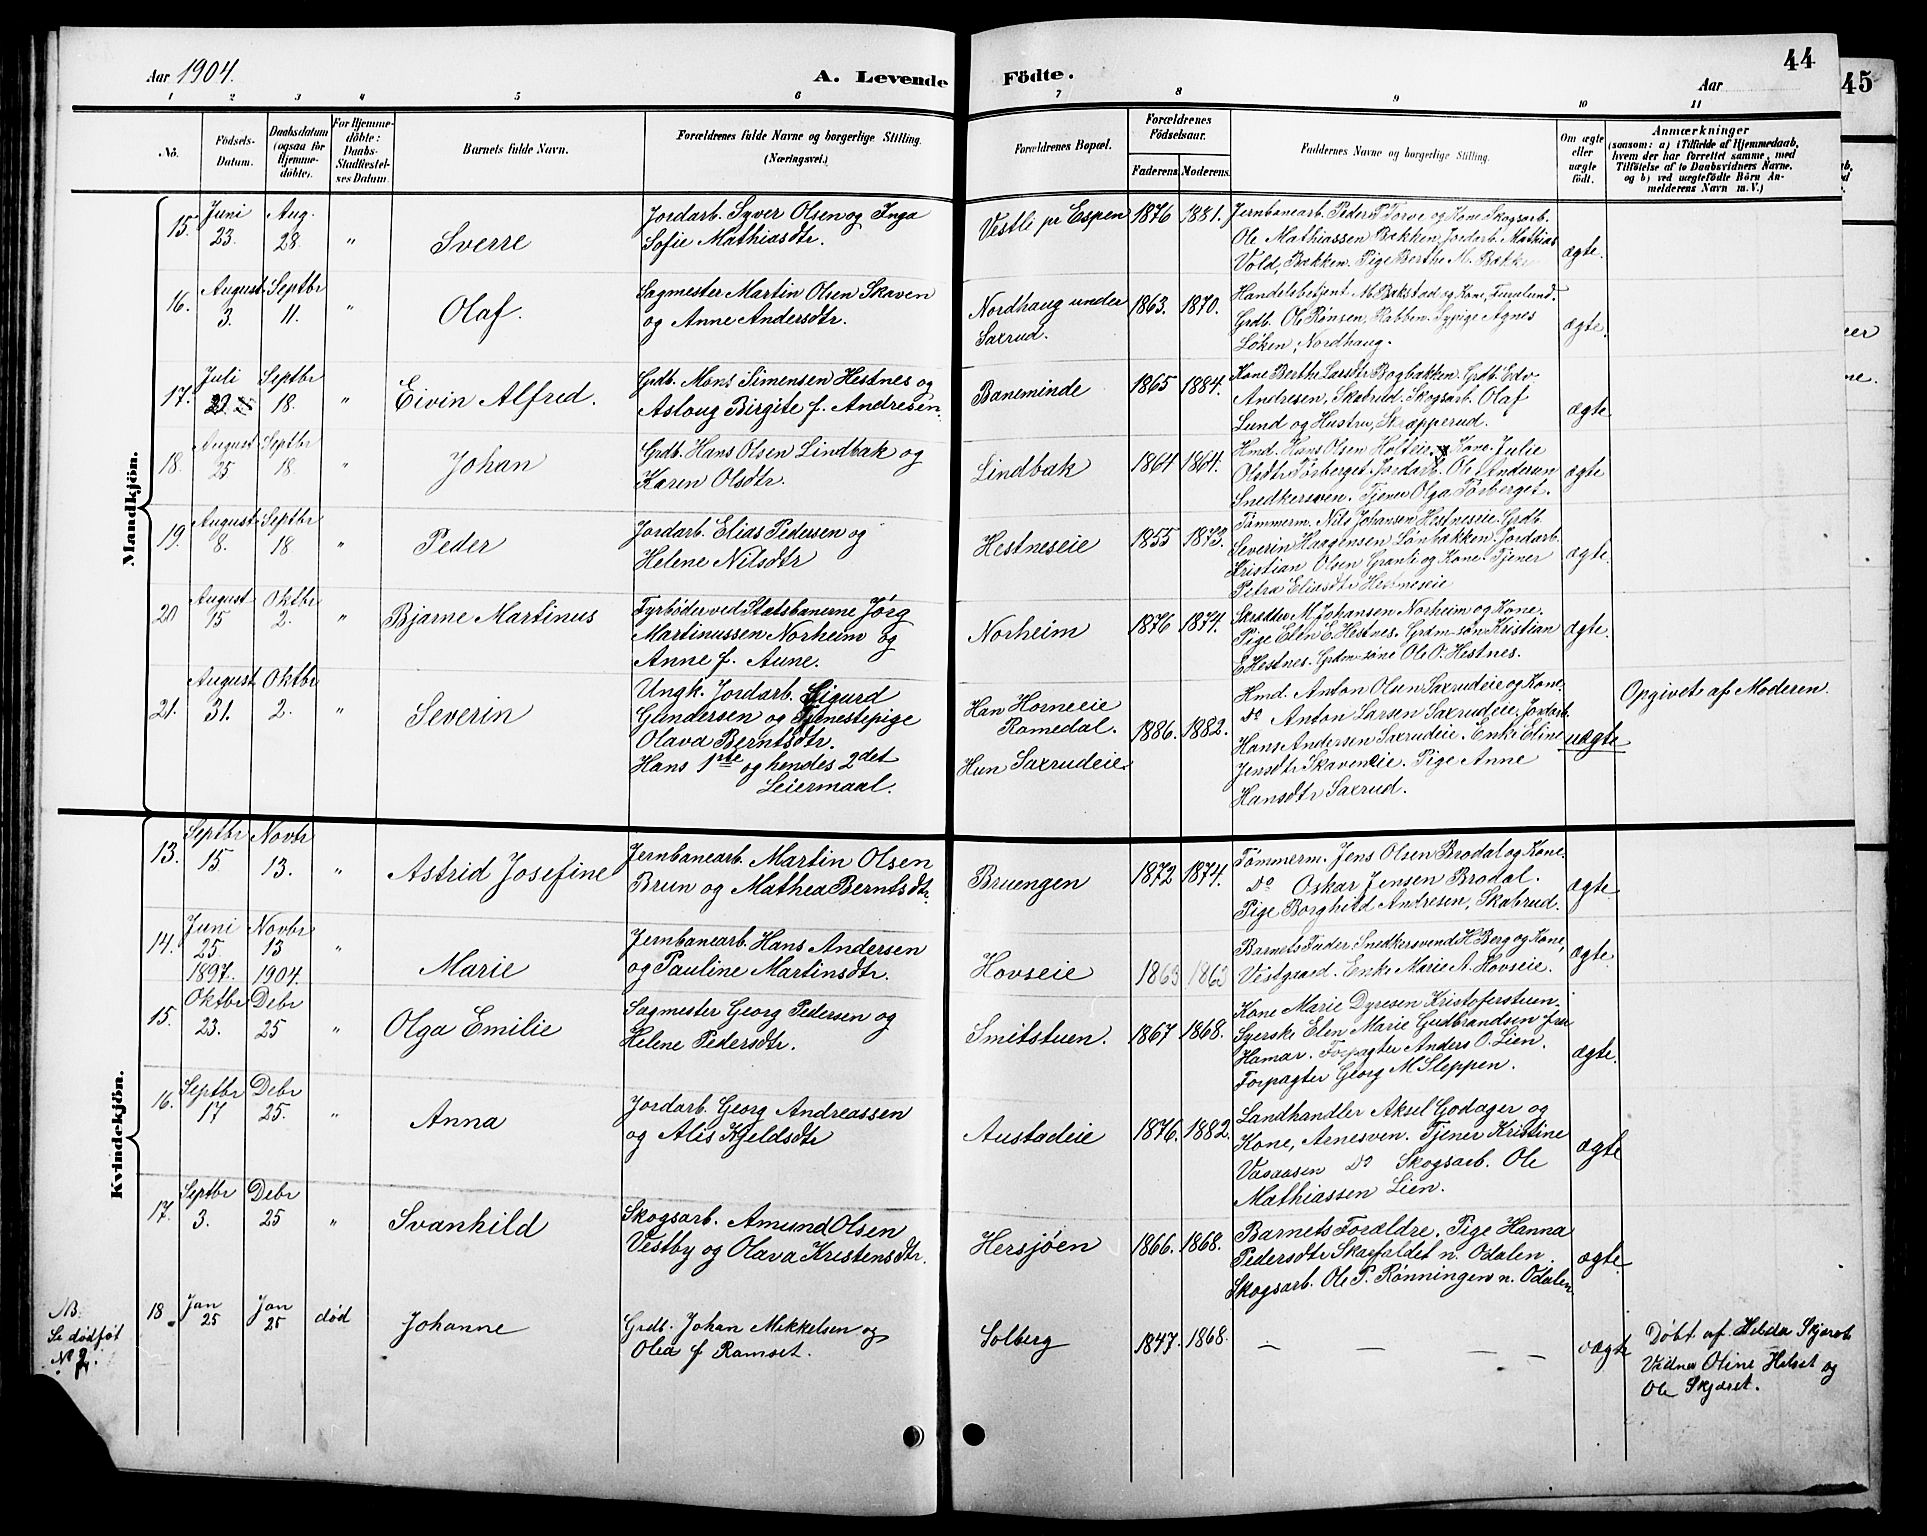 Aar 1904.
A. Levende Födte.
Aar
44
45
1 2 3 4 5 6 7 8 9 10 11
No.
Födsels-Datum.
Daabsdatum (ogsaa for Hjemmedöbte).
For Hjemmedöbte: Daabs-Stadfæstelses Datum.
Barnets fulde Navn.
Forældrenes fulde Navne og borgerlige Stilling. (Næringsvei.)
Forældrenes Bopæl.
Forældrenes Födselsaar.
Faderens. Moderens.
Faddernes Navne og borgerlige Stilling.
Om ægte eller uægte födt.
Anmærkninger
(saasom: a) i Tilfælde af Hjemmedaab, hvem der har forrettet samme, med Tilföielse af to Daabsvidners Navne, og b) ved uægtefödte Börn Anmelderens Navn m. V.)
Mandkjön.
15. Juni 23. Aug. 28. " Sverre
Jordarb. Syver Olsen og Inga
Sofie Mathiasdtr.
Vestli pr Espen 1876 1881.
Jernbanearb. Peder Torve og Kone Skogsarb.
Ole Mathiassen Bækken, Jordarb. Mathias
Vold, Bækken. Pige Berthe M. Bække
ægte.
16. August 3. Septbr 11. " Olaf.
Sagmester Martin Olsen Skaven
og Anne Andersdtr.
Nordhaug under
Saxrud.
1863. 1870.
Handelsbetjent M. Bakstad og Kone, Furulund.
Grdb. Ole Rønsen, Rabben. Sypige Agnes
Løken, Nordhaug.
ægte.
17. Juli 29. Septbr 18. " Eivin Alfred.
Grdb. Mons Simensen Hestnes og
Aslaug Birgite f. Andresen.
Baneminde 1865 1884.
Kone Berthe Larsdtr Bogbakken. Grdb. Edv
Andresen, Skabrud. Skogsarb. Olaf
Lund og Hustru, Skræpperud.
ægte
18. August 25 Septbr 18. " Johan
Grdb. Hans Olsen Lindbak og
Karen Olsdtr.
Lindbak 1864 1864.
Hmd. Hans Olsen Holteie. Kone Julie
Olsdtr Torberget. Jordarb. Ole Andersen
Snedkersven. Tjener Olga Torberget.
ægte
19. August 8. Septbr 18 " Peder
Jordarb. Elias Pedersen og
Helene Nilsdtr
Hestneseie 1855 1873.
Tømmerm. Nils Johansen Hestneseie. Grdb.
Severin Haagensen Lønbækken. Jordarb.
Kristian Olsen Granli og Kone. Tjener
Petra Eliasdtr Hestneseie
ægte.
20 August 15 Oktbr 2. " Bjarne Martinus
Fyrbøder ved Statsbanerne Jørg
Martinussen Norheim og
Anne f. Aune.
Norheim 1876 1874.
M Johansen Norheim og Kone.
Pige Elen E Hestnes. Grdm-søn Kristian
E Hestnes. Grdm-søn Ole O. Hestnes.
ægte.
21. August 31. Oktbr 2. " Severin
Ungk. Jordarb. Sigurd
Gundersen og Tjenestepige
Olava Berntsdtr.
Hans 1ste og hendes 2det
Leiermaal.
Han Horneeie
Romedal.
Hun Saxrudeie
1886. 1882.
Hmd. Anton Olsen Saxrudeie og Kone.
Do Anton Larsen Saxrudeie. Jordarb.
Hans Andersen Saxrudeie. Enke Eline
Jensdtr Skaveneie. Pige Anne
Hansdtr Saxrud.
uægte
Opgivet af Moderen.
Kvindekjön.
13. Septbr 15 Novbr 13. " Astrid Josefine
Jernbanearb. Martin Olsen
Brun og Mathea Berntsdtr.
Bruengen 1872 1874.
Tømmerm. Jens Olsen Brodal og Kone.
Do Oskar Jensen Brodal.
Pige Borghild Andresen, Skabrud.
ægte.
14. Juni 25 1897. Novbr 13 1904. " Marie
Jernbanearb. Hans Andersen
og Pauline Martinsdtr.
Hovseie 1863 1863
Barnets Fader, Snedkersvend K Berg og Kone,
Vestgaard. Enke Marie A. Hovseie.
ægte.
15. Oktbr 23. Debr 25 " Olga Emilie
Sagmester Georg Pedersen og
Helene Pedersdtr.
Smitstuen. 1867 1868.
Kone Marie Dyresen Kristoferstuen.
Syerske Elen Marie Gudbrandsen fra
Hamar. Forpagter Anders O. Lien.
Forpagter Georg M Sleppen.
ægte.
16. Septbr 17 Debr 25. " Anna
Jordarb. Georg Andreassen
og Alis Kjeldsdtr
Austadeie 1876. 1882.
Landhandler Aksel Godager og
Kone, Arnesven. Tjener Kristine
Vasaasen Do Skogsarb. Ole
Mathiassen Lien.
ægte
17. Septbr 3. Debr 25 " Svanhild
Skogsarb. Amund Olsen
Vestby og Olava Kristensdtr.
Hersjøen 1866. 1868.
Barnets Forældre. Pige Hanna
Pedersdtr Skarfaldet n. Odalen.
Skogsarb. Ole P. Rønningen n. Odalen
ægte.
NB.
Se dødføt
No 2.
18. Jan 25 Jan 25 død Johanne
Grdb. Johan Mikkelsen og
Olea f Ramset.
Solberg 1847. 1868. — — — —
ægte
Døbt af Hilda Skjæret
Vidner Oline Helset og
Ole Skjæret.